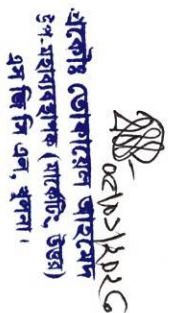 প্রকৌঃ তোফায়েল আহমেদ
উপ-মহাব্যবস্থাপক (মার্কেটিং, উত্তর)
এস জি সি এল, খুলনা।